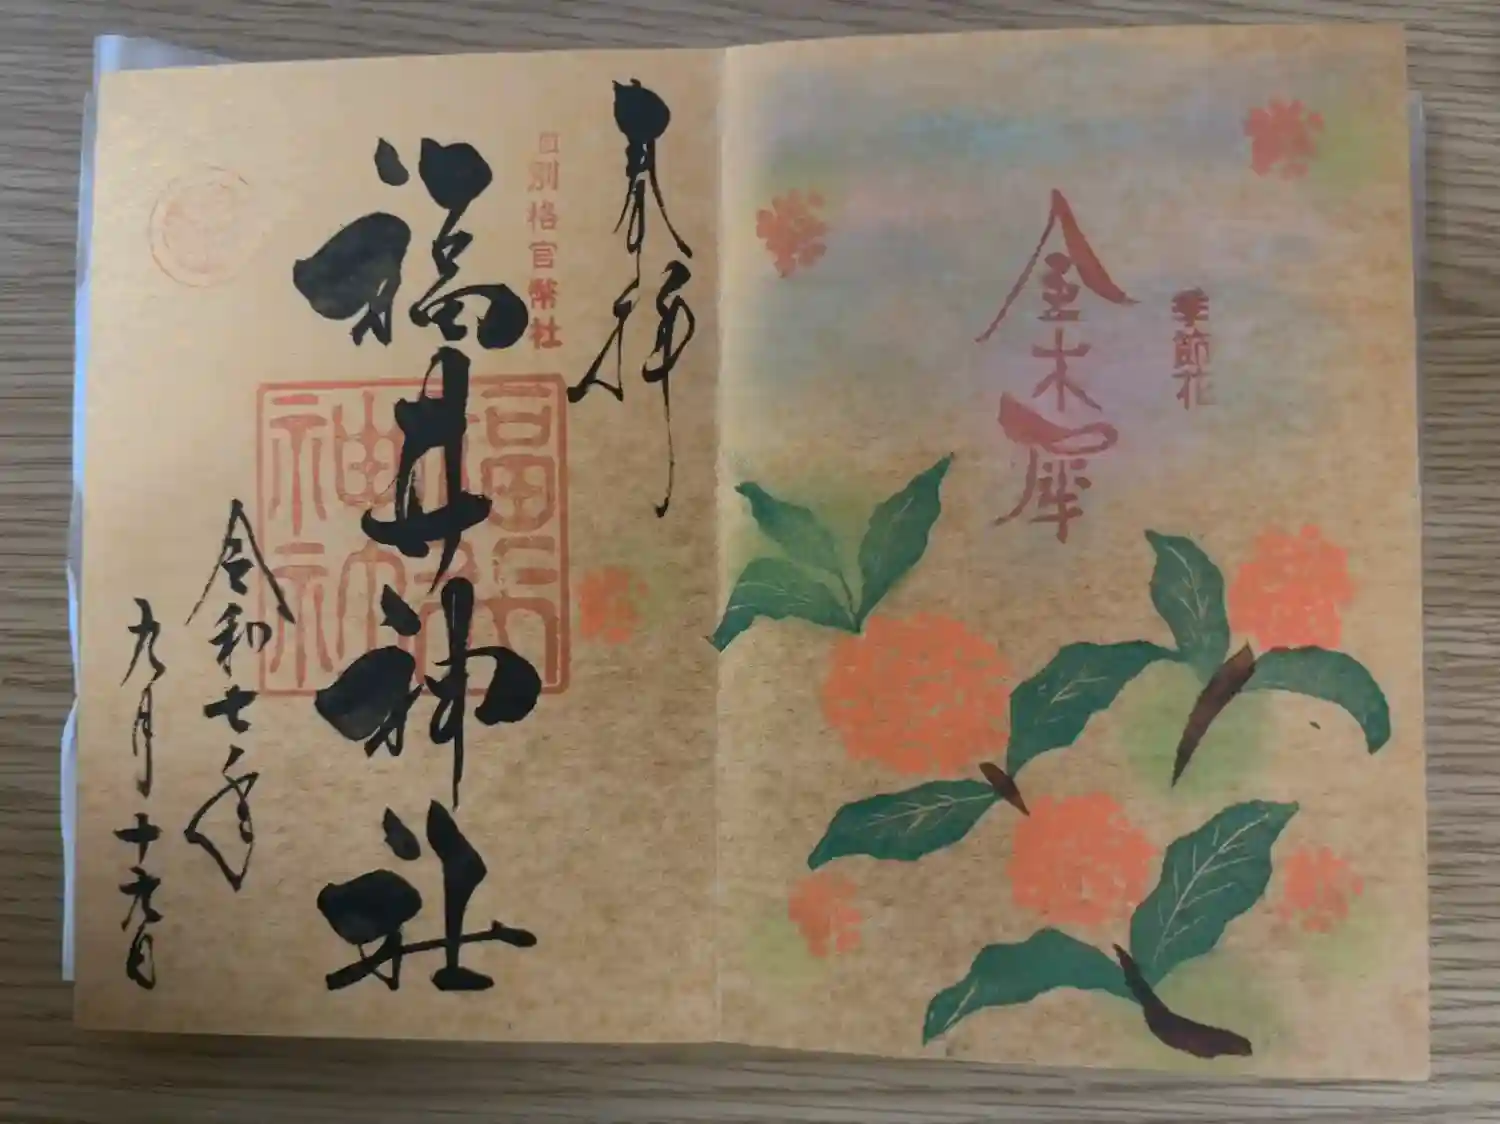 季節花
金木犀
奉拝
旧別格官幣社
福井神社
令和七年
九月十九日